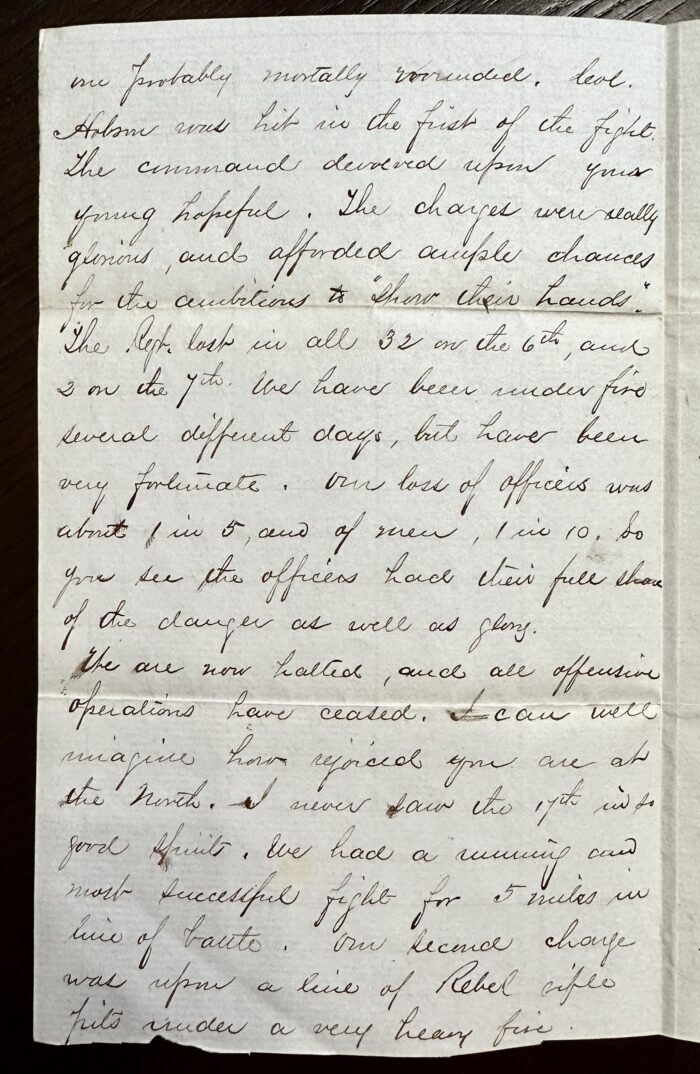 one probably mortally wounded. Col.
Hobson was hit in the first of the fight.
The command devolved upon your
young hopeful. The charges were really
glorious, and afforded ample chances
for the ambitious to "show their hands."
The Regt. lost in all 32 on the 6th, and
2 on the 7th. We have been under fire
several different days, but have been
very fortunate. Our loss of officers was
about 1 in 5, and of men, 1 in 10. So
you see the officers had their full share
of the danger as well as glory.
We are now halted, and all offensive
operations have ceased. I can well
imagine how rejoiced you are at
the North. I never saw the 17th in so
good spirits. We had a running and
most successful fight for 5 miles in
line of battle. Our second charge
was upon a line of Rebel rifle
pits under a very heavy fire.